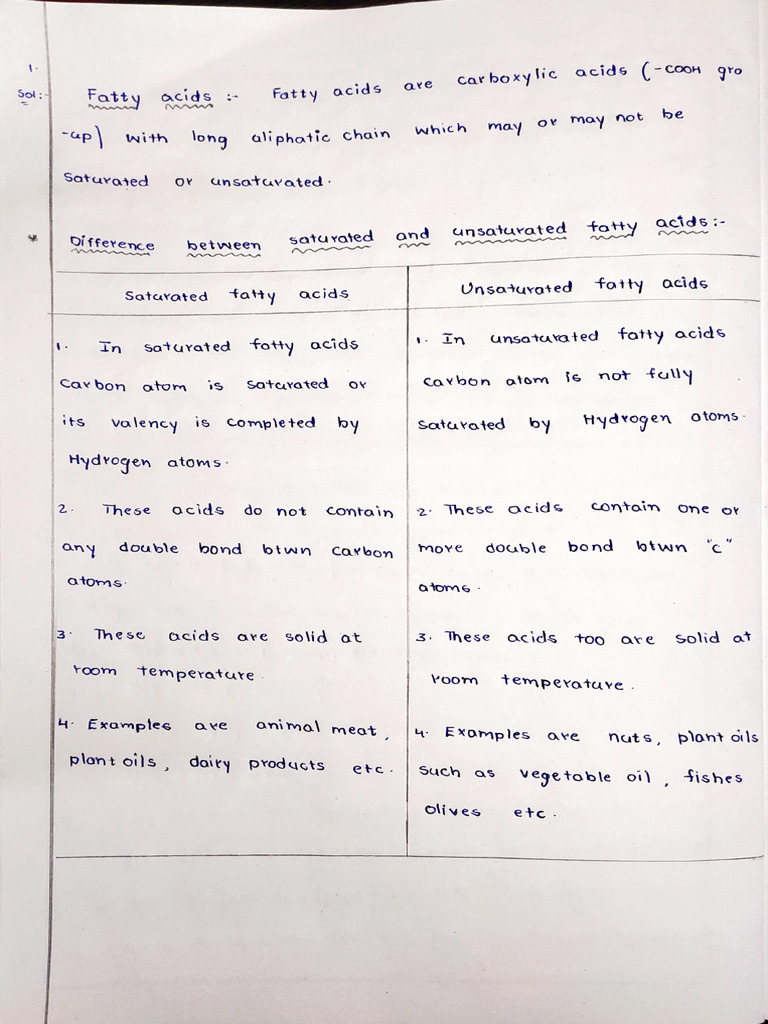 1.
Sol:- Fatty acids :- Fatty acids are carboxylic acids (-COOH gro
-up) with long aliphatic chain which may or may not be
saturated or unsaturated.
* Difference between saturated and unsaturated fatty acids:-
Saturated fatty acids
1. In saturated fatty acids
carbon atom is saturated or
its valency is completed by
Hydrogen atoms.
2. These acids do not contain
any double bond btwn carbon
atoms.
3. These acids are solid at
room temperature.
4. Examples are animal meat,
plant oils, dairy products etc.
Unsaturated fatty acids
1. In unsaturated fatty acids
carbon atom is not fully
saturated by Hydrogen atoms.
2. These acids contain one or
more double bond btwn "c"
atoms.
3. These acids too are solid at
room temperature.
4. Examples are nuts, plant oils
such as vegetable oil, fishes
olives etc.